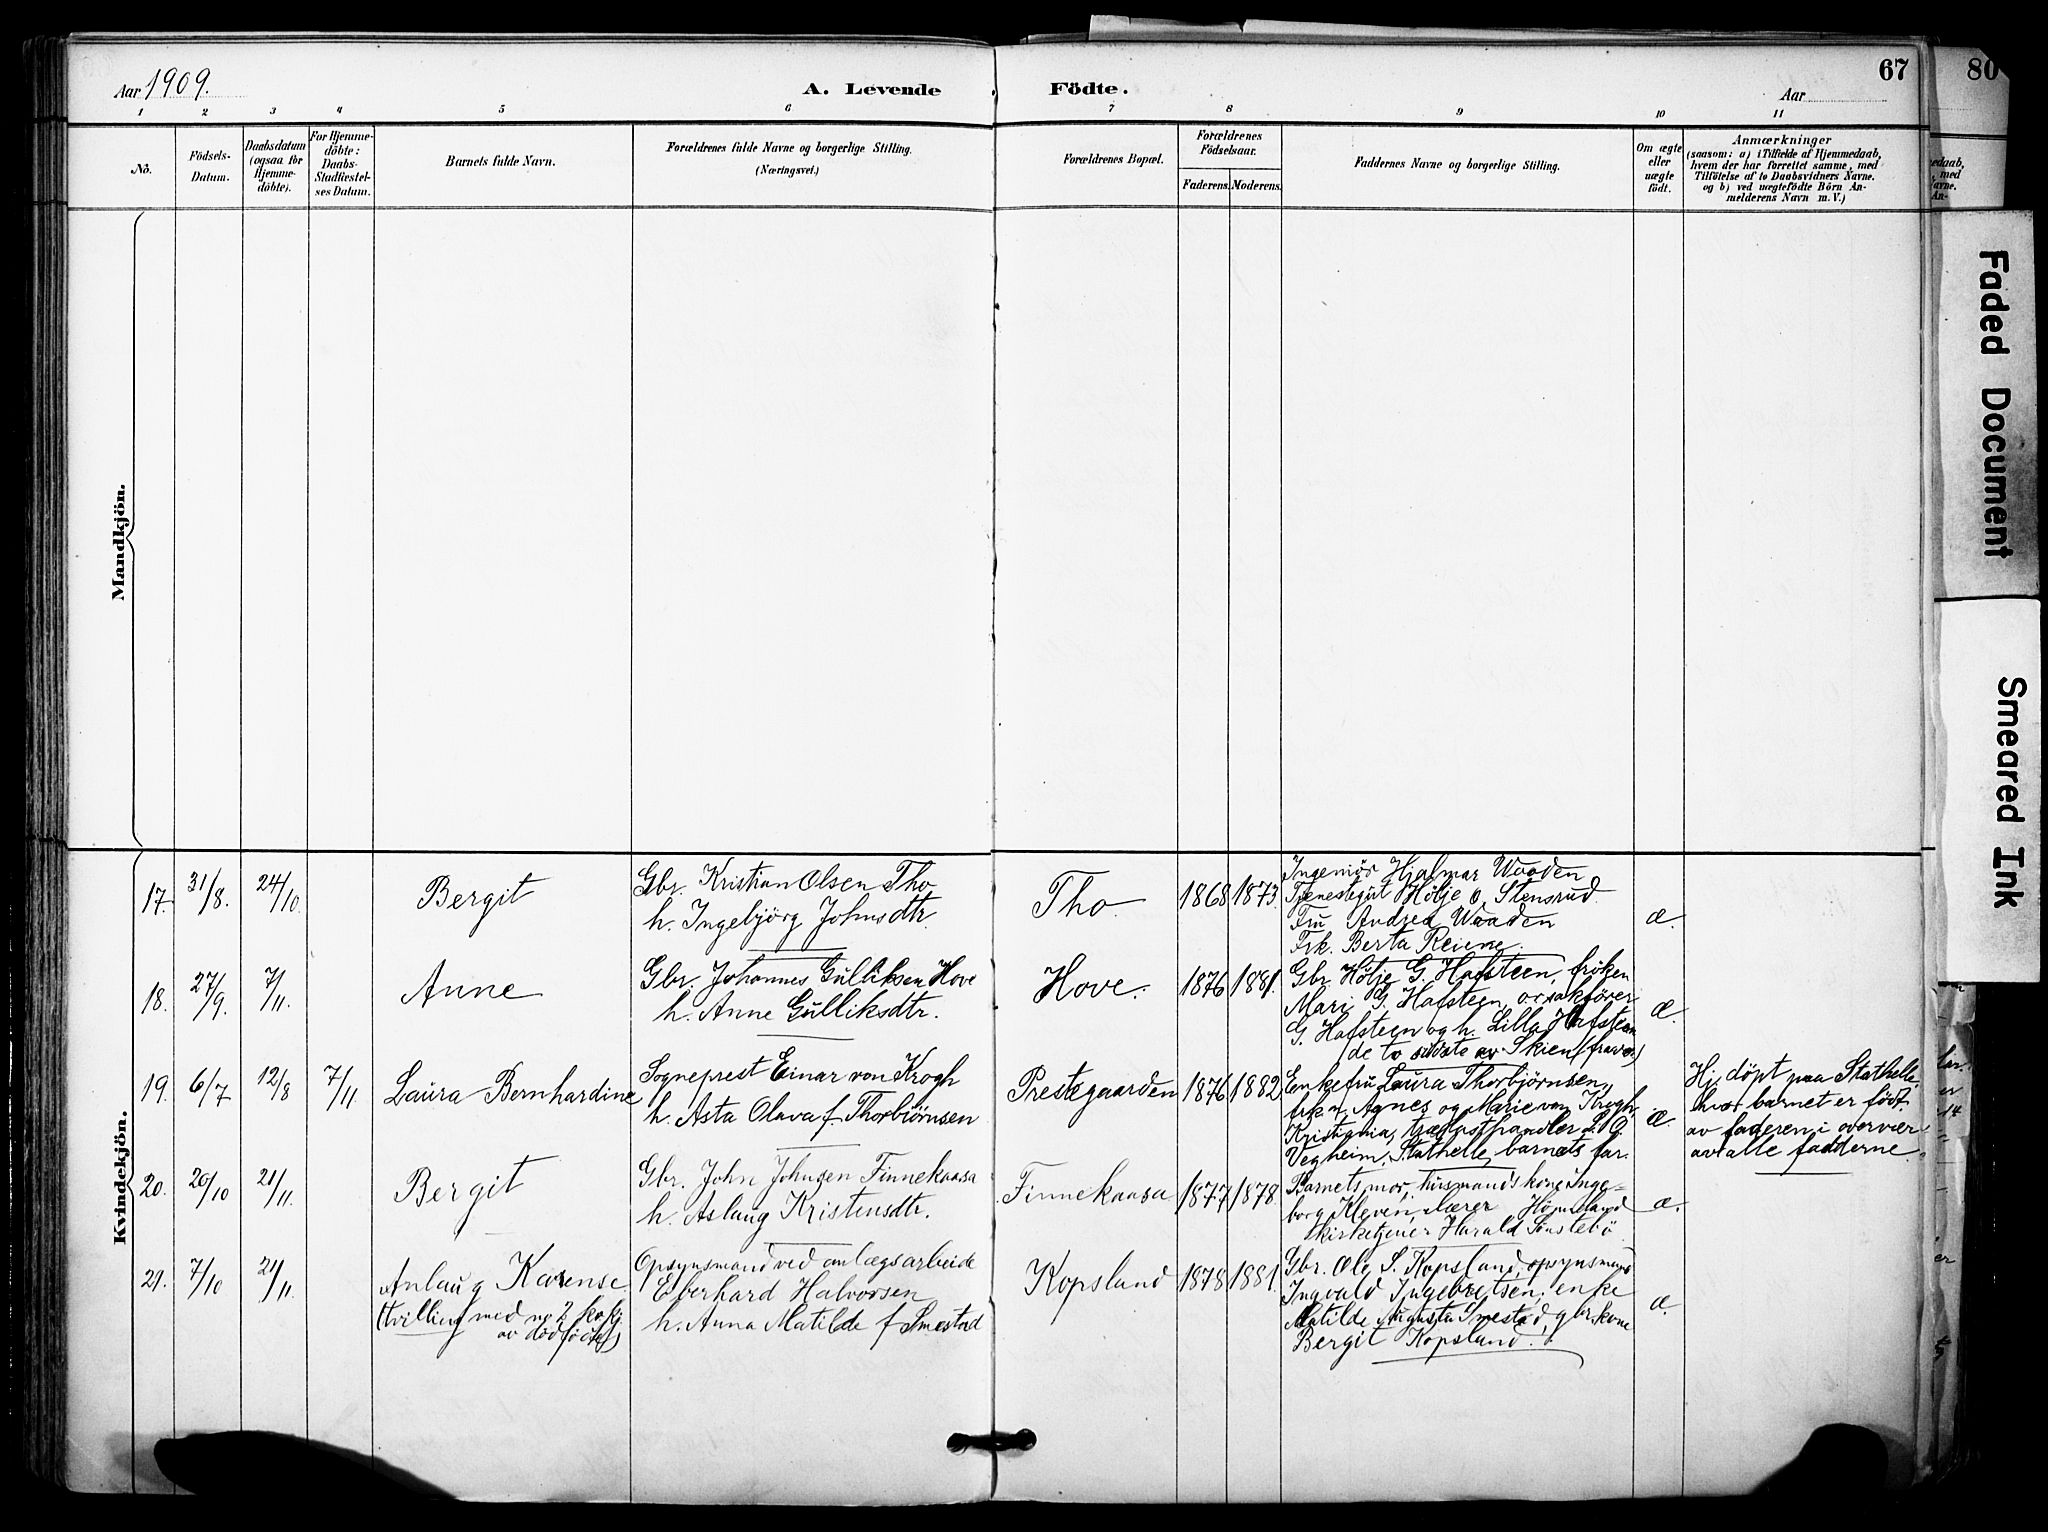 Aar 1909.
A. Levende Födte.
67
80
Aar
1 2 3 4 5 6 7 8 9 10 11
No.
Födsels-
Datum.
Daabsdatum
(ogsaa for
Hjemme-
döbte).
For Hjemme-
döbte:
Daabs-
Stadfæstel-
ses Datum.
Barnets fulde Navn.
Forældrenes fulde Navne og borgerlige Stilling.
(Næringsvei.)
Forældrenes Bopæl.
Forældrenes
Födselsaar.
Faderens. Moderens.
Faddernes Navne og borgerlige Stilling.
Om ægte
eller
uægte
födt.
Anmærkninger
(saasom: a) i Tilfælde af Hjemmedaab,
hvem der har forrettet samme, med
Tilföielse af to Daabsvidners Navne.
og b) ved uægtefödte Börn An-
melderens Navn m. V.)
Mandkjön.
Kvindekjön.
17. 31/8. 24/10. Bergit
Gbr. Kristian Olsen Tho
h. Ingebjörg Johnsdtr.
Tho. 1868 1873.
Ingeniör Hjalmar Waaden
Tjenestegut Hölje O. Stensrud
Fru Andrea Waaden
Frk. Berta Reiene.
æ.
18. 27/9. 7/11. Anne
Gbr. Johannes Gulliksen Hove
h. Anne Gulliksdtr.
Hove. 1876 1881.
Gbr Hölje G. Hafsteen, fröken
Mari G. Hafsteen, o.r.sakförer
G. Hafsteen og h. Lilla Hafsteen
de to sidste av Skien (fravær.)
æ.
19. 6/7 12/8 7/11 Laura Bernhardine
Sogneprest Einar von Krogh
h. Asta Olava f. Thorbjörnsen
Prestegaarden 1876 1882
Enkefru Laura Thorbjörnsen,
frkn. Agnes og Marie von Krogh,
Kristiania, trælasthandler L. O.
Vegheim, Stathelle, barnets far.
æ.
Hj. döpt paa Stathelle,
hvor barnet er födt,
av faderen i overvær
av alle fadderne.
20. 20/10 21/11. Bergit
Gbr. John Johnsen Finnekaasa
h. Aslaug Kristensdtr.
Finnekaasa 1877 1878.
Barnets mor, husmandskone Inge-
borg Kleven, lærer Högneland
kirketjener Harald Sönstebö
æ.
21. 7/10 21/11. Anlaug Karense
(tvilling med no 2 kvkj.
av dödfödte)
Opsynsmand ved anlægsarbeide
Eberhard Halvorsen
h. Anna Matilde f Smestad
Kopsland 1878 1881.
Gbr. Ole S. Kopsland, opsynsmand
Ingvald Ingebretsen, enke
Matilde Augusta Smestad, gbr.kone
Bergit Kopsland.
æ.
Faded Document
Smeared Ink